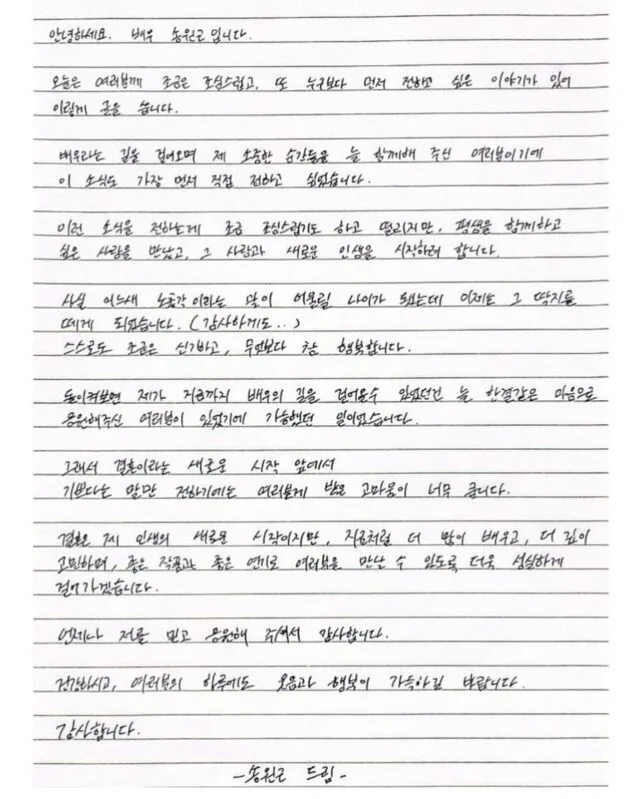 안녕하세요. 배우 송원근 입니다.
오늘은 여러분께 조금은 조심스럽고, 또 누구보다 먼저 전하고 싶은 이야기가 있어
이렇게 글을 씁니다.
배우라는 길을 걸어오며 제 소중한 순간들을 늘 함께해 주신 여러분이기에
이 소식도 가장 먼저 직접 전하고 싶었습니다.
이런 소식을 전하는게 조금 조심스럽기도 하고 떨리지만, 평생을 함께하고
싶은 사람을 만났고, 그 사람과 새로운 인생을 시작하려 합니다.
사실 어느새 노총각 이라는 말이 어울릴 나이가 되었는데 이제는 그 딱지를
떼게 되었습니다. (감사하게도..)
스스로도 조금은 신기하고, 무엇보다 참 행복합니다.
돌이켜보면 제가 지금까지 배우의 길을 걸어올수 있었던건 늘 한결같은 마음으로
응원해주신 여러분이 있었기에 가능했던 일이었습니다.
그래서 결혼이라는 새로운 시작 앞에서
기쁘다는 말만 전하기에는 여러분께 받은 고마움이 너무 큽니다.
결혼은 제 인생의 새로운 시작이지만, 지금처럼 더 많이 배우고, 더 깊이
고민하며, 좋은 작품과 좋은 연기로 여러분을 만날 수 있도록 더욱 성실하게
걸어가겠습니다.
언제나 저를 믿고 응원해 주셔서 감사합니다.
건강하시고, 여러분의 하루에도 웃음과 행복이 가득하길 바랍니다.
감사합니다.
-송원근 드림-